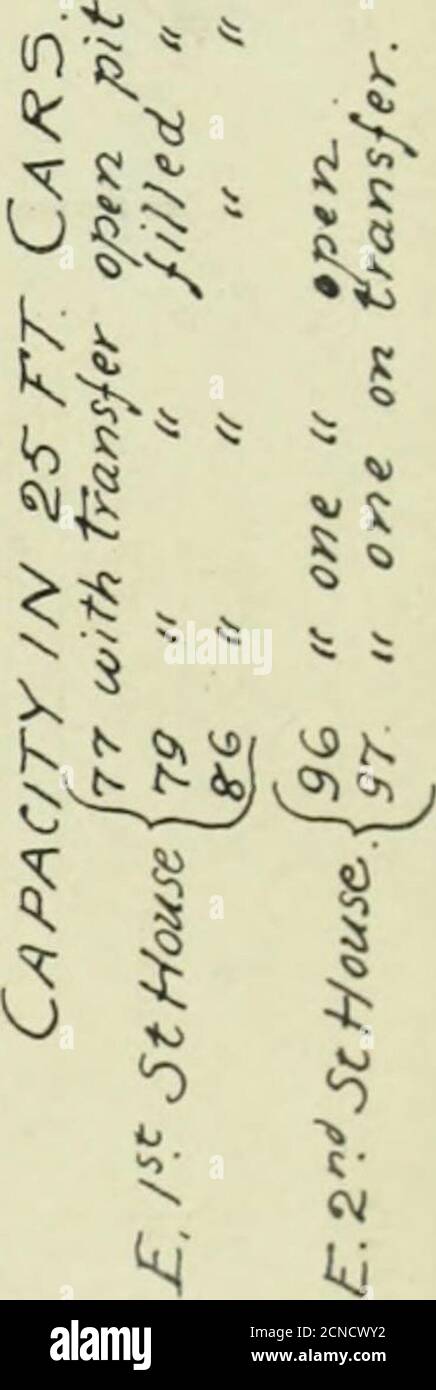 CAPACITY IN 25 FT. CARS.
E. 1st St House { 77 with transfer open pit
79 " " filled "
86 " " " "
E. 2nd St House. { 96 " one " open.
97. " one on transfer.
alamy
Image ID: 2CNCWY2
www.alamy.com